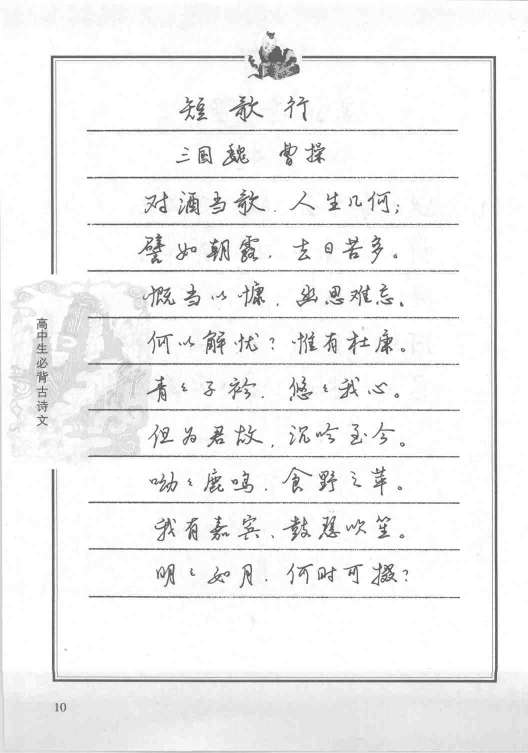 短歌行
三国魏 曹操
对酒当歌，人生几何；
譬如朝露，去日苦多。
慨当以慷，幽思难忘。
何以解忧？惟有杜康。
青々子衿，悠々我心。
但为君故，沉吟至今。
呦々鹿鸣，食野之苹。
我有嘉宾，鼓瑟吹笙。
明々如月，何时可掇？
高中生必背古诗文
10